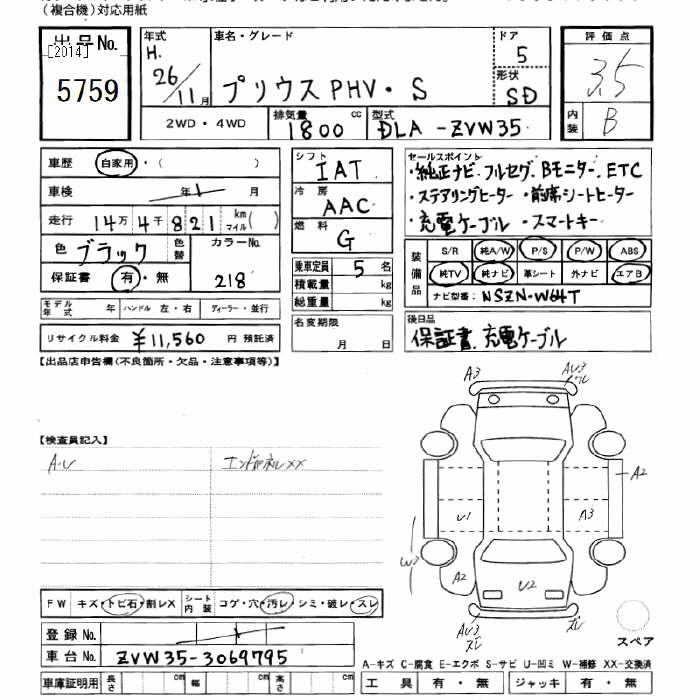 (複合機)対応用紙
出品No. [2014] 5759
年式 H. 26/11月
車名・グレード プリウスPHV・S
ドア 5
形状 SD
2WD・4WD
排気量 1800 cc
型式 DLA-ZVW35
評価点 3.5
内装 B
車歴 自家用・( )
車検 年 月
走行 14万4千821 km マイル( )
色 ブラック 色替 カラーNo.
保証書 有・無 218
モデル年式 年 ハンドル 左・右 ディーラー・並行
リサイクル料金 ¥11,560 円 預託済
シフト IAT
冷房 AAC
燃料 G
乗車定員 5 名
積載量 kg
総重量 kg
名変期限 月 日
セールスポイント
・純正ナビ.フルセグ.Bモニター.ETC
・ステアリングヒーター ・前席シートヒーター
・充電ケーブル ・スマートキー
装備品 S/R 純A/W P/S P/W ABS
純TV 純ナビ 革シート 外ナビ エアB
ナビ型番: NSZN-W64T
後日品
保証書.充電ケーブル
【出品店申告欄(不良箇所・欠品・注意事項等)】
【検査員記入】
A・U
A3 AU3
A2
U1 A3
W3
A2 U2
AU3
FW キズ・トビ石・割レX シート内装 コゲ・穴・汚レ・シミ・破レ・スレ
スペア
登録No.
車台No. ZVW35-3069795
A-キズ C-腐食 E-エクボ S-サビ U-凹ミ W-補修 XX-交換済
車庫証明用 長さ cm 幅 cm 高さ cm
工具 有・無 ジャッキ 有・無